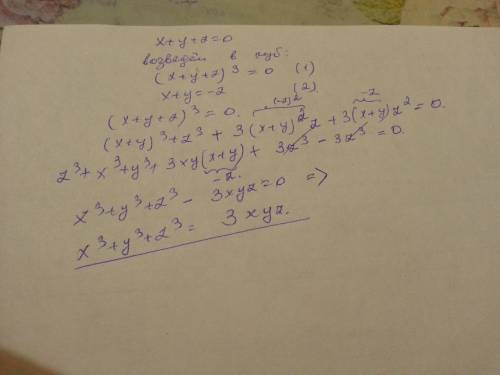 x+y+z=0
возведём в куб:
(x+y+z)³ = 0 (1)
x+y=-z (2)
(x+y+z)³ = 0. (-z)² -z
(x+y)³ + z³ + 3(x+y)²z + 3(x+y)z² = 0.
z³+x³+y³+3xy(x+y) + 3z³ - 3z³ = 0.
-z
x³+y³+z³ - 3xyz=0 =>
x³+y³+z³ = 3xyz.